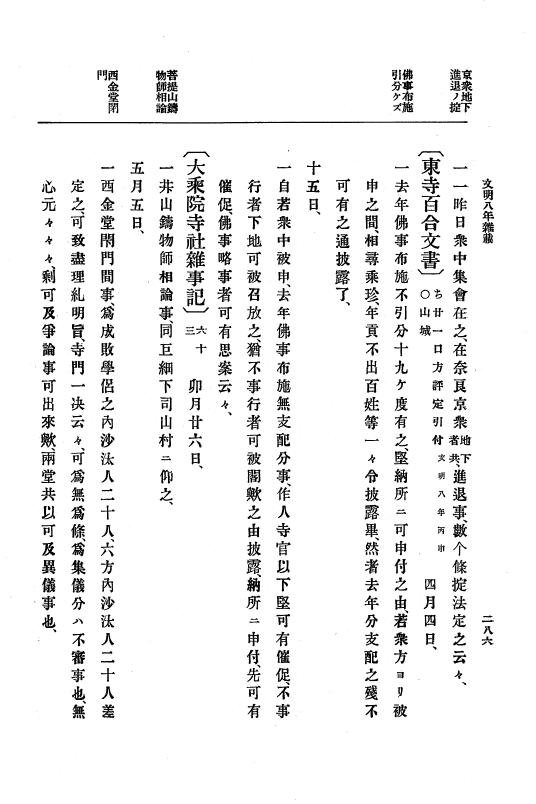 文明八年雜載
二八六
京衆地下
進退ノ掟
佛事布施
引分ケズ
菩提山鑄
物師相論
西金堂閇
門
一一昨日衆中集會在之、在奈良京衆地下者共、進退事、數个條掟法定之云々、
〔東寺百合文書〕 ち廿一口方評定引付 文明八年丙申 ○山城 四月四日、
一去年佛事布施不引分十九ケ度有之、堅納所ニ可申付之由、若衆方ヨリ被
申之間、相尋乘珍、年貢不出百姓等一々令披露畢、然者去年分支配之殘不
可有之通披露了、
十五日、
一自若衆中被申、去年佛事布施無支配分事、作人寺官以下堅可有催促、不事
行者下地可被召放之、猶不事行者可被閣歟之由披露、納所ニ申付、先可有
催促、佛事略事者可有思案云々、
〔大乘院寺社雜事記〕 六十三 卯月廿六日、
一井山鑄物師相論事、同巨細下司山村ニ仰之、
五月五日、
一西金堂閇門間事、爲成敗學侶之內沙汰人二十八、六方內沙汰人二十八差
定之、可致盡理糺明旨、寺門一决云々、可爲無爲條、爲集儀分ハ不審事也、無
心元々々々、剩可及爭論事可出來歟、兩堂共以可及異儀事也、